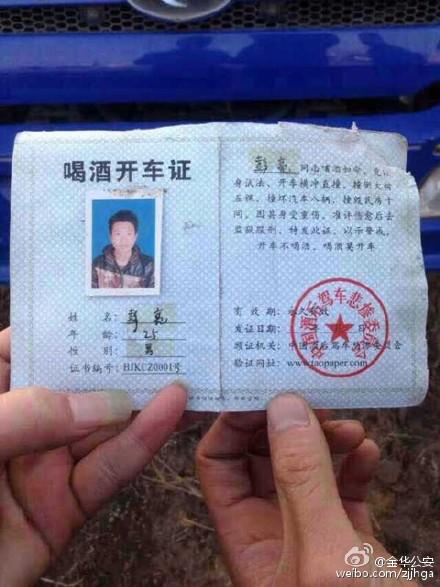 喝酒开车证
姓 名：彭亮
年 龄：25
性 别：男
证书编号：HJKCZ0001号
彭亮 同志嗜酒如命，竟以
身试法，开车横冲直撞，撞倒大树
五棵，撞坏汽车八辆，撞毁民房十
间，因其身受重伤，准许伤愈后去
监狱服刑，特发此证，以示警戒。
开车不喝酒，喝酒莫开车
有 效 期：永久有效
发证日期：
颁证机关：中国酒后驾车悲惨委员会
验证网址：www.taopaper.com
中国酒后驾车悲惨委员会
金华公安
weibo.com/zjjhga